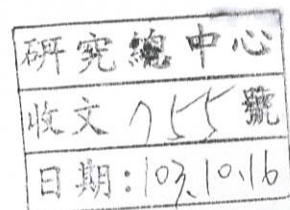 研究總中心
收文755號
日期:103.10.16